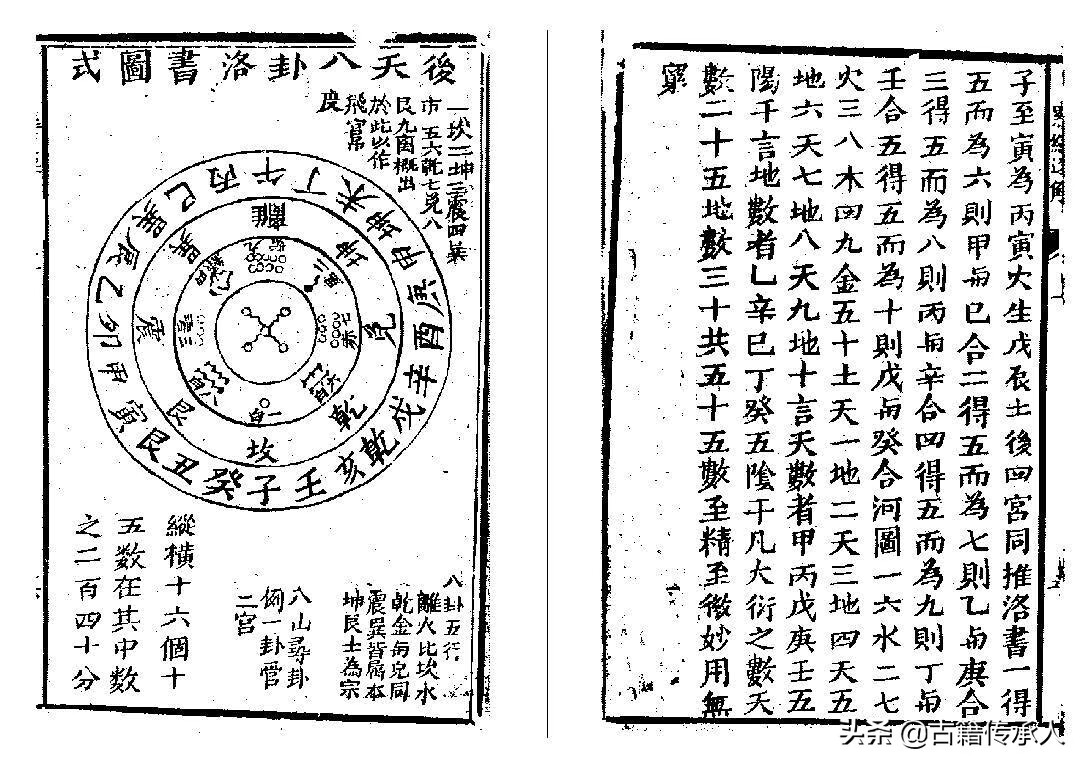 子至寅為丙寅火生戊辰土後四宮同推洛書一得
五而為六則甲與己合二得五而為七則乙與庚合
三得五而為八則丙與辛合四得五而為九則丁與
壬合五得五而為十則戊與癸合河圖一六水二七
火三八木四九金五十土天一地二天三地四天五
地六天七地八天九地十言天數者甲丙戊庚壬五
陽干言地數者乙辛巳丁癸五陰干凡大衍之數天
數二十五地數三十共五十五數至精至微妙用無
窮
後天八卦洛書圖式
一坎二坤三震四巽
市五六乾七兌八
艮九离概出
於此以作
飛宮
度
午丁未坤申庚酉辛戌乾亥壬子癸丑艮寅甲卯乙辰巽巳丙
離坤兌乾坎艮震巽
八卦五行
離火比坎水
乾金與兌同
震巽皆屬木
坤艮土為宗
八山尋卦
例一卦管
二宮
縱橫十六個十
五數在其中數
之二百四十分
头条 @古籍传承人